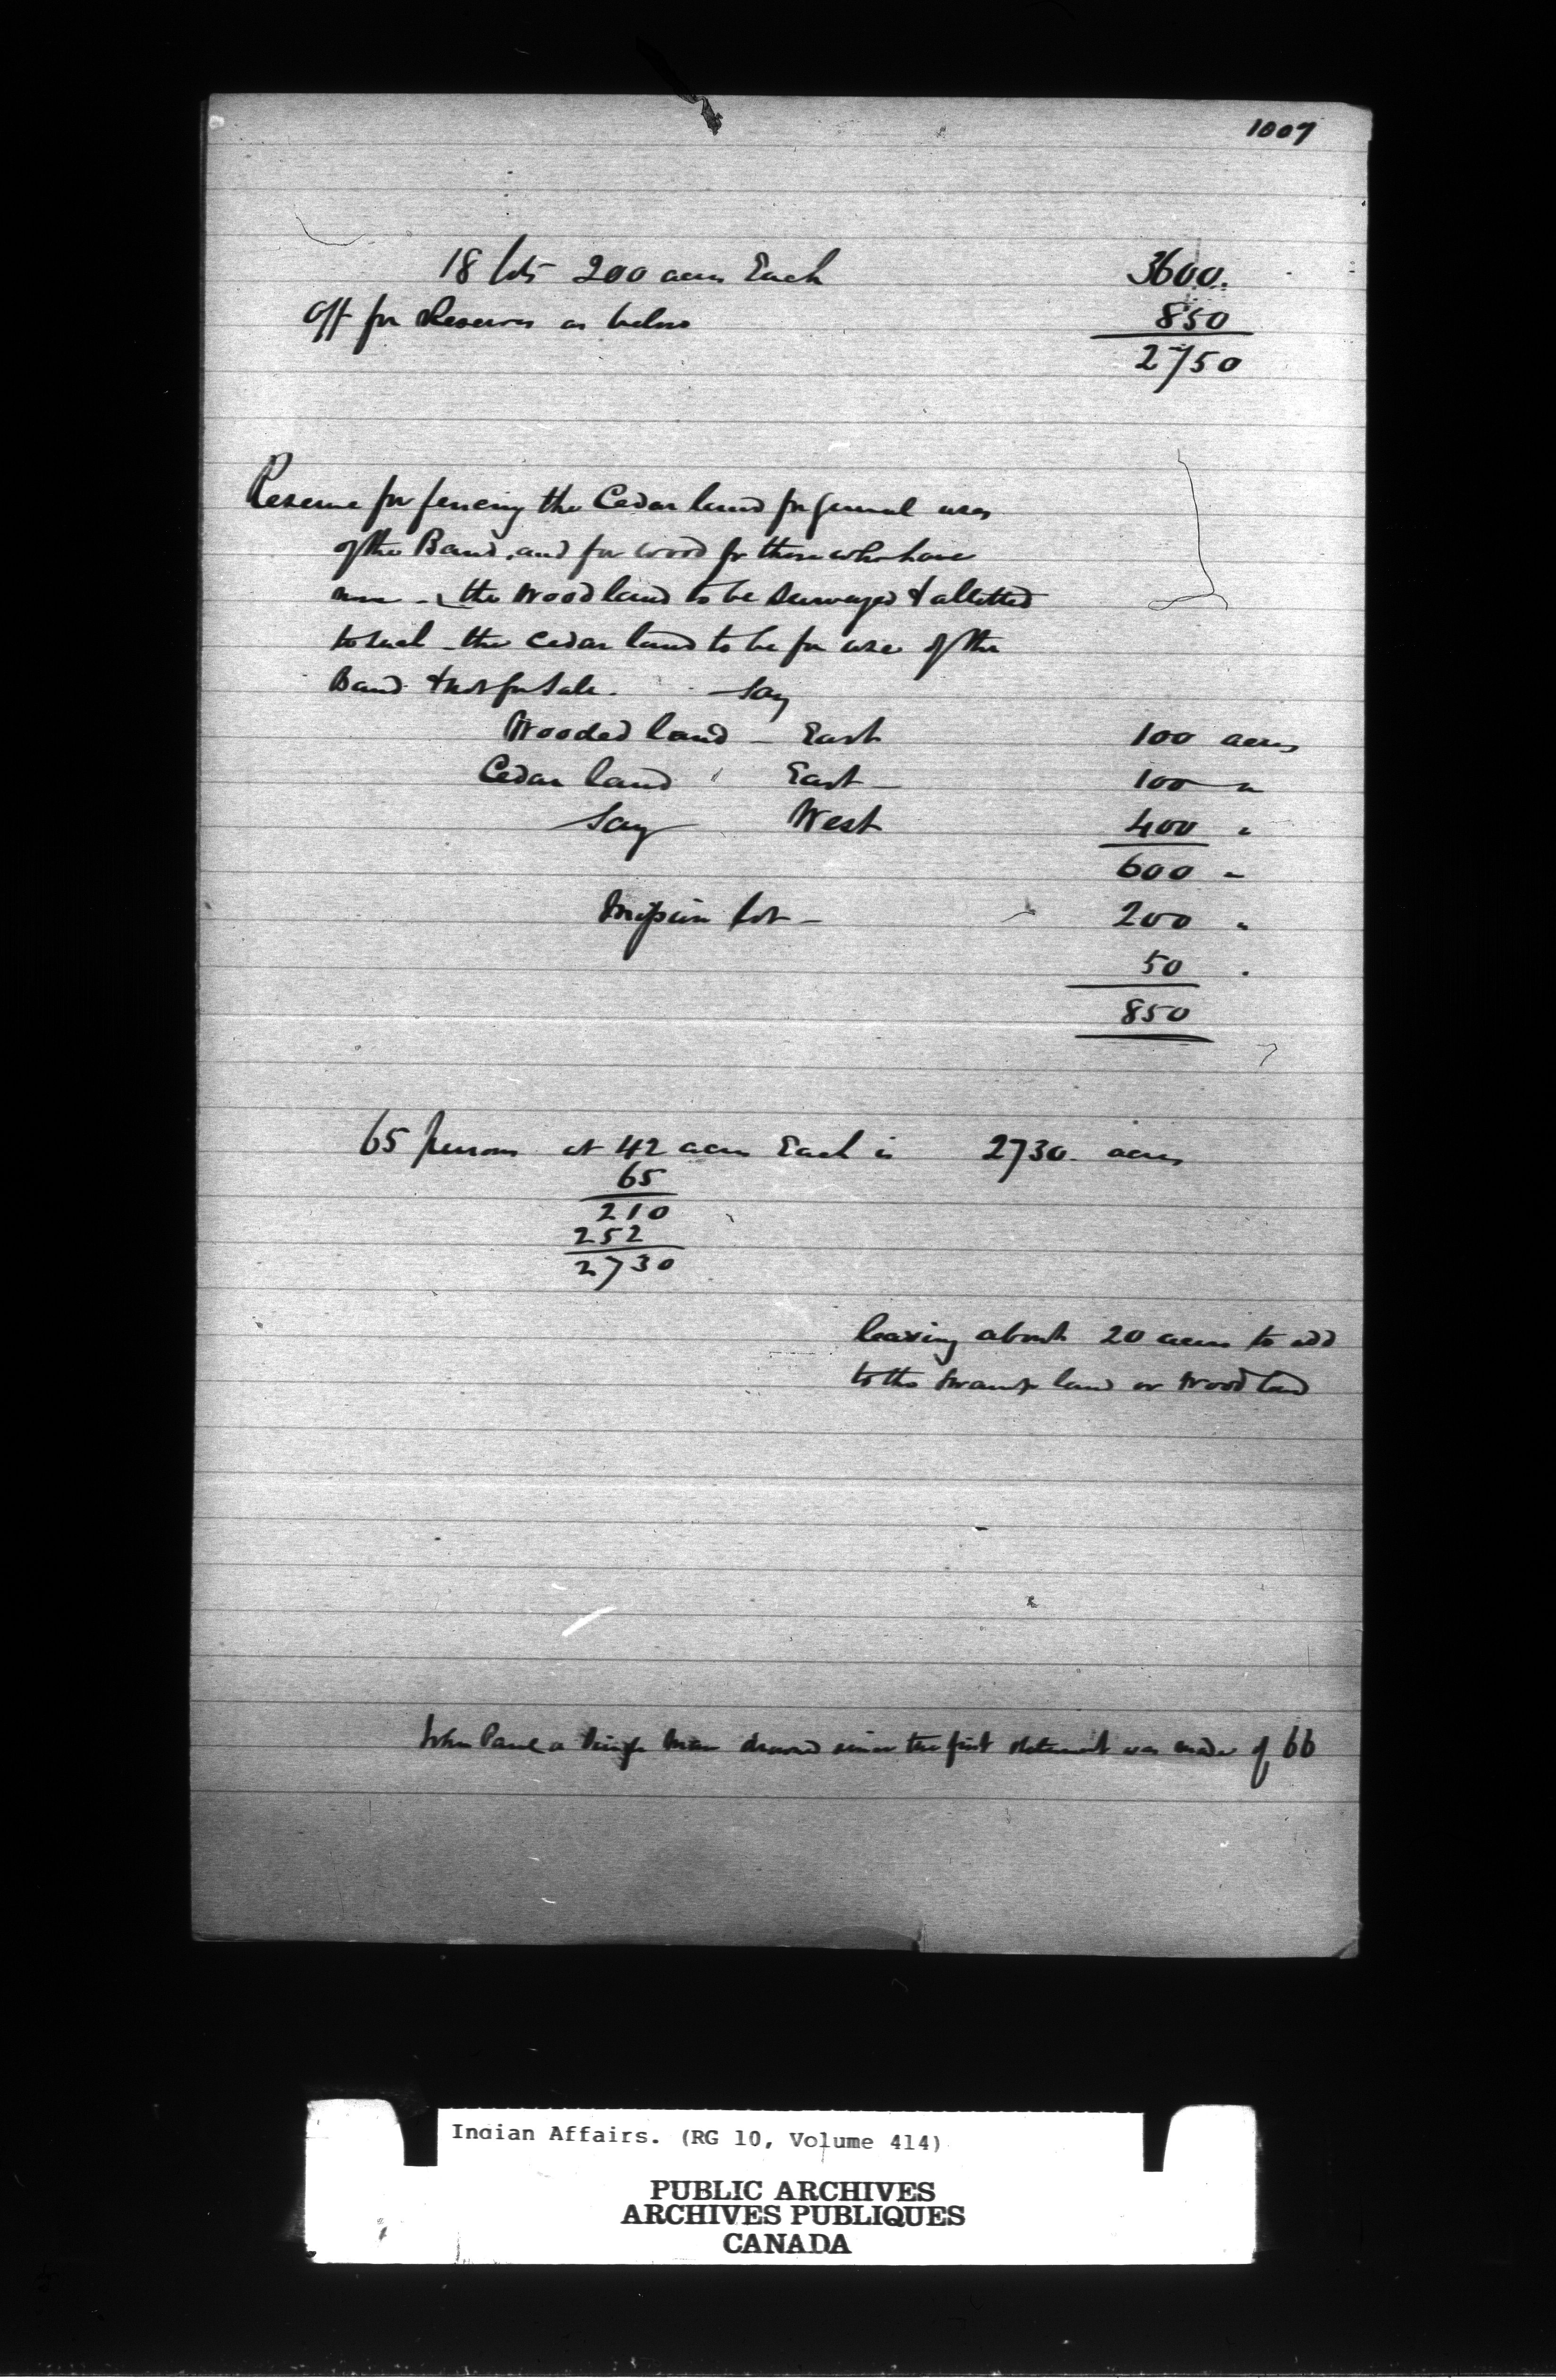 1007
18 lots 200 acres Each 3600.
Off for Reserves as below 850
2750
Reserve for fencing the Cedar land for general uses
of the Band, and for wood for those who have
none - the Wood land to be Surveyed & allotted
to such - the Cedar land to be for use of the
Band & not for Sale. Say
Wooded land - East 100 acres
Cedar land East - 100 "
Say West 400 "
600 "
Mission lot - 200 "
50 "
850
65 persons at 42 acres Each is 2730 acres
65
210
252
2730
leaving about 20 acres to add
to the Swamp land or Wood land
John Paul a Single Man drowned since the first statement was made of 66
Indian Affairs. (RG 10, Volume 414)
PUBLIC ARCHIVES
ARCHIVES PUBLIQUES
CANADA